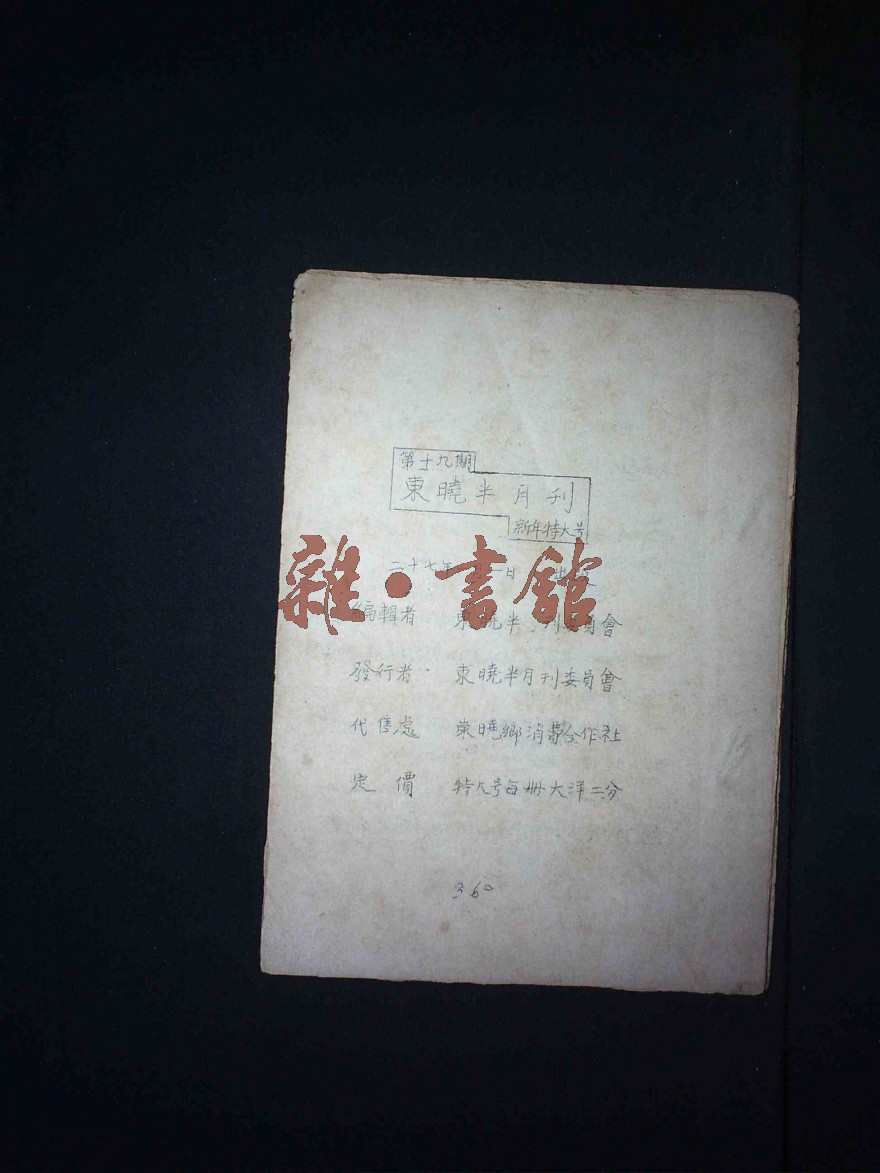 第十九期
東曉半月刊
新年特大号
二十七年 月一日 出
雜·書館
編輯者 東曉半月刊委員會
發行者 東曉半月刊委員會
代售處 東曉鄉消費合作社
定價 特大号每册大洋二分
360